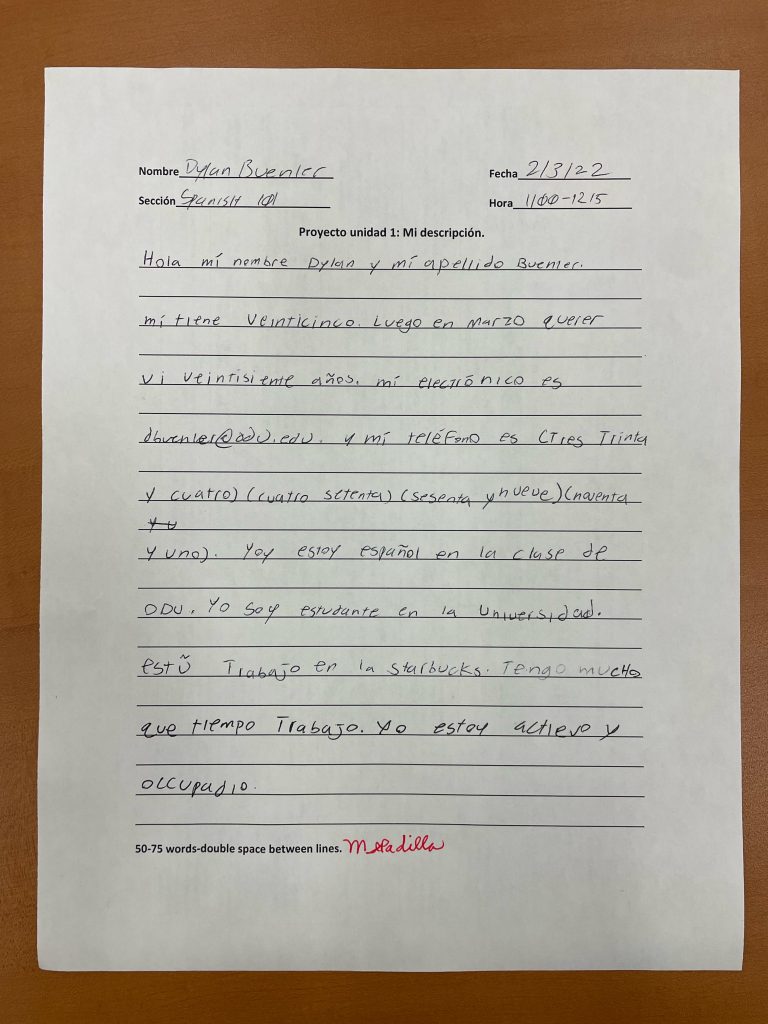 Nombre Dylan Buenler Fecha 2/3/22
Sección Spanish 101 Hora 1100-1215
Proyecto unidad 1: Mi descripción.
Hola mí nombre Dylan y mí apellido Buenler.
mí tiene veinticinco. Luego en Marzo querer
vi veintisiente años. mí electrónico es
dbuenler@odu.edu. y mí teléfono es (Tres Trinta
y cuatro) (cuatro setenta) (sesenta y nueve) (noventa
y u
y uno). Yoy estoy español en la clase de
ODU. Yo soy estudante en la Universidad.
Trabajo en la Starbucks. Tengo mucho
que tiempo Trabajo. Yo estoy actievo y
occupadio.
50-75 words-double space between lines.